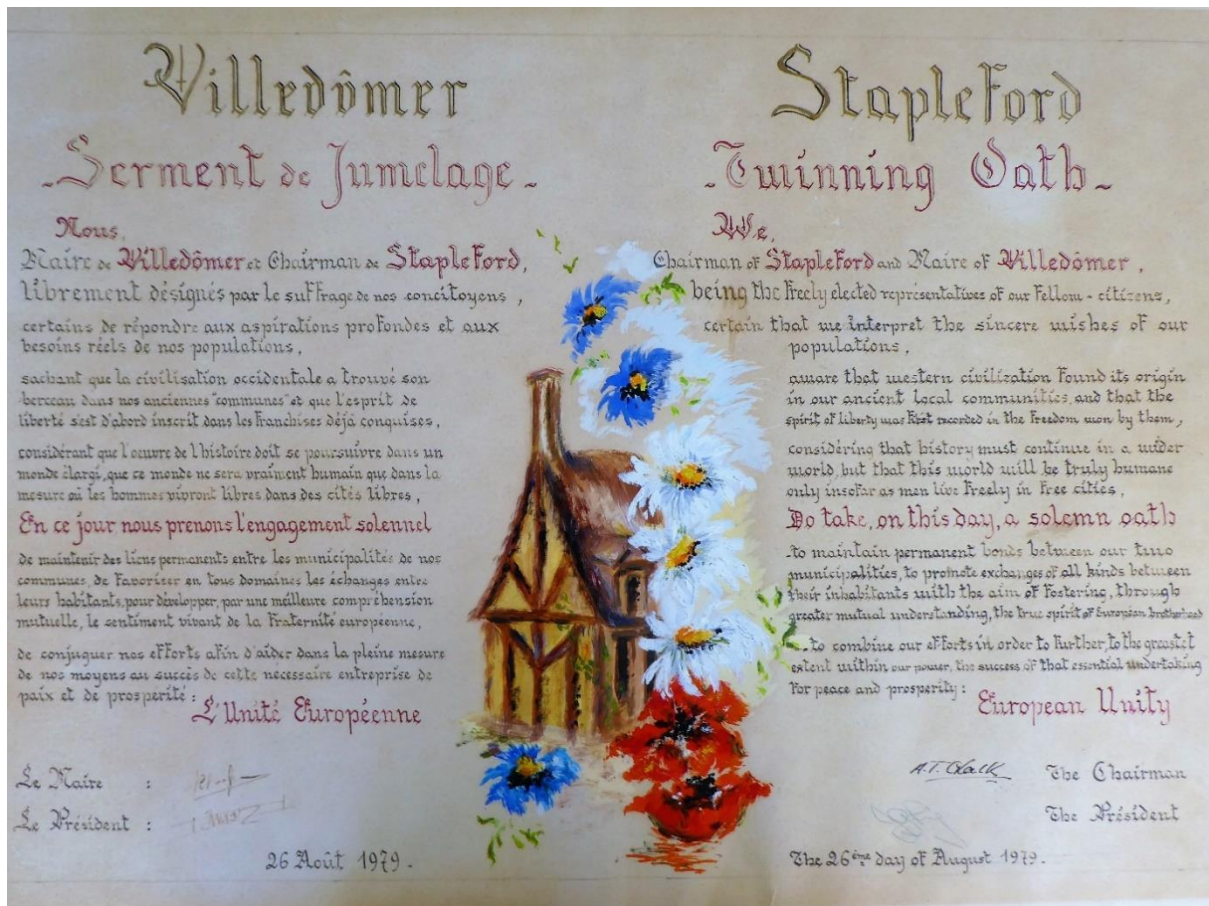 Villedômer
Serment de Jumelage -
Nous,
Maire de Villedômer et Chairman de Stapleford,
librement désignés par le suffrage de nos concitoyens,
certains de répondre aux aspirations profondes et aux
besoins réels de nos populations,
sachant que la civilisation occidentale a trouvé son
berceau dans nos anciennes "communes" et que l'esprit de
liberté s'est d'abord inscrit dans les franchises déjà conquises,
considérant que l'oeuvre de l'histoire doit se poursuivre dans un
monde élargi, que ce monde ne sera vraiment humain que dans la
mesure où les hommes vivront libres dans des cités libres,
En ce jour nous prenons l'engagement solennel
de maintenir des liens permanents entre les municipalités de nos
communes, de favoriser en tous domaines les échanges entre
leurs habitants, pour développer, par une meilleure compréhension
mutuelle, le sentiment vivant de la fraternité européenne,
de conjuguer nos efforts afin d'aider dans la pleine mesure
de nos moyens au succès de cette nécessaire entreprise de
paix et de prospérité :
L'Unité Européenne
Le Maire :
Le Président :
26 Août 1979.
Stapleford
- Twinning Oath -
We,
Chairman of Stapleford and Maire of Villedômer,
being the freely elected représentatives of our fellow-citizens,
certain that we interpret the sincere wishes of our
populations,
aware that western civilization found its origin
in our ancient local communities, and that the
spirit of liberty was first recorded in the freedom won by them,
considering that history must continue in a wider
world, but that this world will be truly humane
only insofar as men live freely in free cities,
Do take, on this day, a solemn oath
to maintain permanent bonds between our two
municipalities, to promote exchanges of all kinds between
their inhabitants with the aim of fostering, through
greater mutual understanding, the true spirit of European brotherhood
- to combine our efforts in order to further, to the greatest
extent within our power, the success of that essential undertaking
for peace and prosperity :
European Unity
A.T. Chalk The Chairman
The Président
The 26ème day of August 1979.